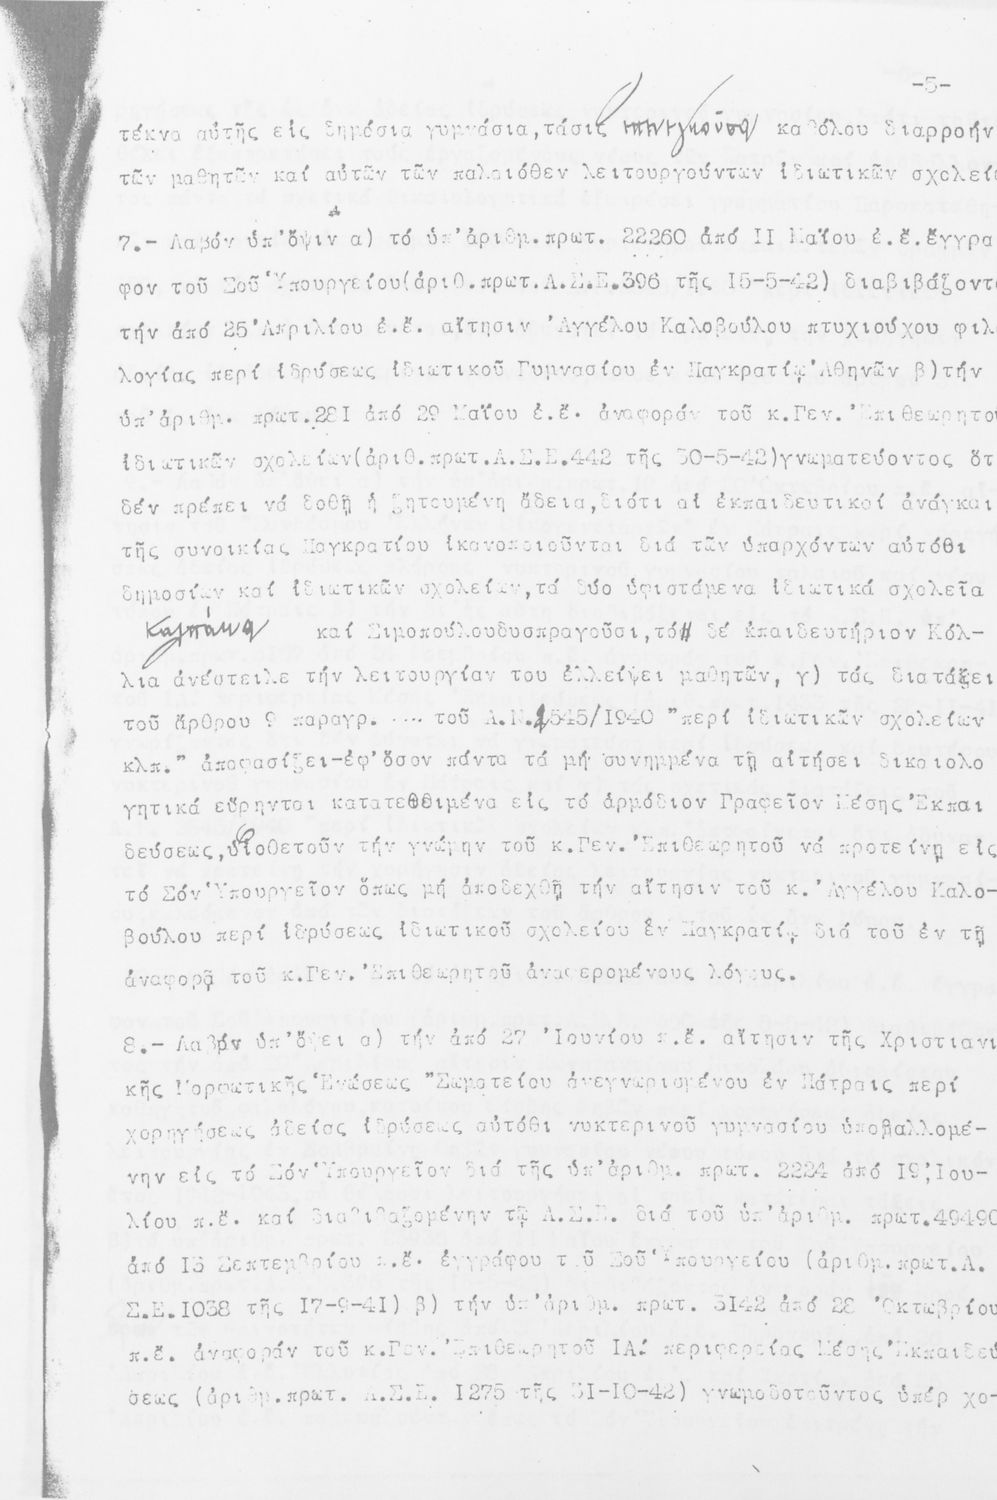 -5-
τέκνα αὐτῆς εἰς δημόσια γυμνάσια, τάσις καθόλου διαρροήν
τῶν μαθητῶν καί αὐτῶν τῶν παλαιόθεν λειτουργούντων ἰδιωτικῶν σχολεί
7.- Λαβόν ὑπ' ὄψιν α) τό ὑπ' ἀριθμ. πρωτ. 22260 ἀπό II Μαΐου ἐ.ἔ. ἔγγρα
φον τοῦ Σοῦ Ὑπουργείου (ἀριθ. πρωτ. Α.Σ.Ε. 396 τῆς I5-5-42) διαβιβάζοντ
τήν ἀπό 25 Ἀπριλίου ἐ.ἔ. αἴτησιν Ἀγγέλου Καλοβούλου πτυχιούχου φιλ
λογίας περί ἱδρύσεως ἰδιωτικοῦ Γυμνασίου ἐν Παγκρατίῳ Ἀθηνῶν β) τήν
ὑπ' ἀριθμ. πρωτ. 28I ἀπό 29 Μαΐου ἐ.ἔ. ἀναφοράν τοῦ κ. Γεν. Ἐπιθεωρητοῦ
ἰδιωτικῶν σχολείων (ἀριθ. πρωτ. Α.Σ.Ε. 442 τῆς 30-5-42) γνωματεύοντος ὅτ
δέν πρέπει νά δοθῇ ἡ ζητουμένη ἄδεια, διότι αἱ ἐκπαιδευτικαί ἀνάγκαι
τῆς συνοικίας Παγκρατίου ἱκανοποιοῦνται διά τῶν ὑπαρχόντων αὐτόθι
δημοσίων καί ἰδιωτικῶν σχολείων, τά δύο ὑφιστάμενα ἰδιωτικά σχολεῖα
καί Σιμοπούλου δυσπραγοῦσι, τό δέ ἐκπαιδευτήριον Κόλ-
λια ἀνέστειλε τήν λειτουργίαν του ἐλλείψει μαθητῶν, γ) τάς διατάξει
τοῦ ἄρθρου 9 παραγρ. .... τοῦ Α.Ν. I545/I940 "περί ἰδιωτικῶν σχολείων
κλπ." ἀποφασίζει-ἐφ' ὅσον πάντα τά μή συνημμένα τῇ αἰτήσει δικαιολο
γητικά εὕρηνται κατατεθειμένα εἰς τό ἁρμόδιον Γραφεῖον Μέσης Ἐκπαι
δεύσεως, υἱοθετοῦν τήν γνώμην τοῦ κ. Γεν. Ἐπιθεωρητοῦ νά προτείνῃ εἰς
τό Σόν Ὑπουργεῖον ὅπως μή ἀποδεχθῇ τήν αἴτησιν τοῦ κ. Ἀγγέλου Καλο-
βούλου περί ἱδρύσεως ἰδιωτικοῦ σχολείου ἐν Παγκρατίῳ διά τοῦ ἐν τῇ
ἀναφορᾷ τοῦ κ. Γεν. Ἐπιθεωρητοῦ ἀναφερομένους λόγους.
8.- Λαβόν ὑπ' ὄψει α) τήν ἀπό 27 Ἰουνίου π.ἔ. αἴτησιν τῆς Χριστιανι
κῆς Μορφωτικῆς Ἑνώσεως "Σωματείου ἀνεγνωρισμένου ἐν Πάτραις περί
χορηγήσεως ἀδείας ἱδρύσεως αὐτόθι νυκτερινοῦ γυμνασίου ὑποβαλλομέ-
νην εἰς τό Σόν Ὑπουργεῖον διά τῆς ὑπ' ἀριθμ. πρωτ. 2224 ἀπό I9 Ἰου-
λίου π.ἔ. καί διαβιβαζομένην τῷ Α.Σ.Ε. διά τοῦ ὑπ' ἀριθμ. πρωτ. 49490
ἀπό I3 Σεπτεμβρίου π.ἔ. ἐγγράφου τοῦ Σοῦ Ὑπουργείου (ἀριθμ. πρωτ. Α.
Σ.Ε. I038 τῆς I7-9-4I) β) τήν ὑπ' ἀριθμ. πρωτ. 3I42 ἀπό 28 Ὀκτωβρίου
π.ἔ. ἀναφοράν τοῦ κ. Γεν. Ἐπιθεωρητοῦ ΙΑ' περιφερείας Μέσης Ἐκπαιδεύ
σεως (ἀριθμ. πρωτ. Α.Σ.Ε. I275 τῆς 3I-I0-42) γνωμοδοτοῦντος ὑπέρ χο-